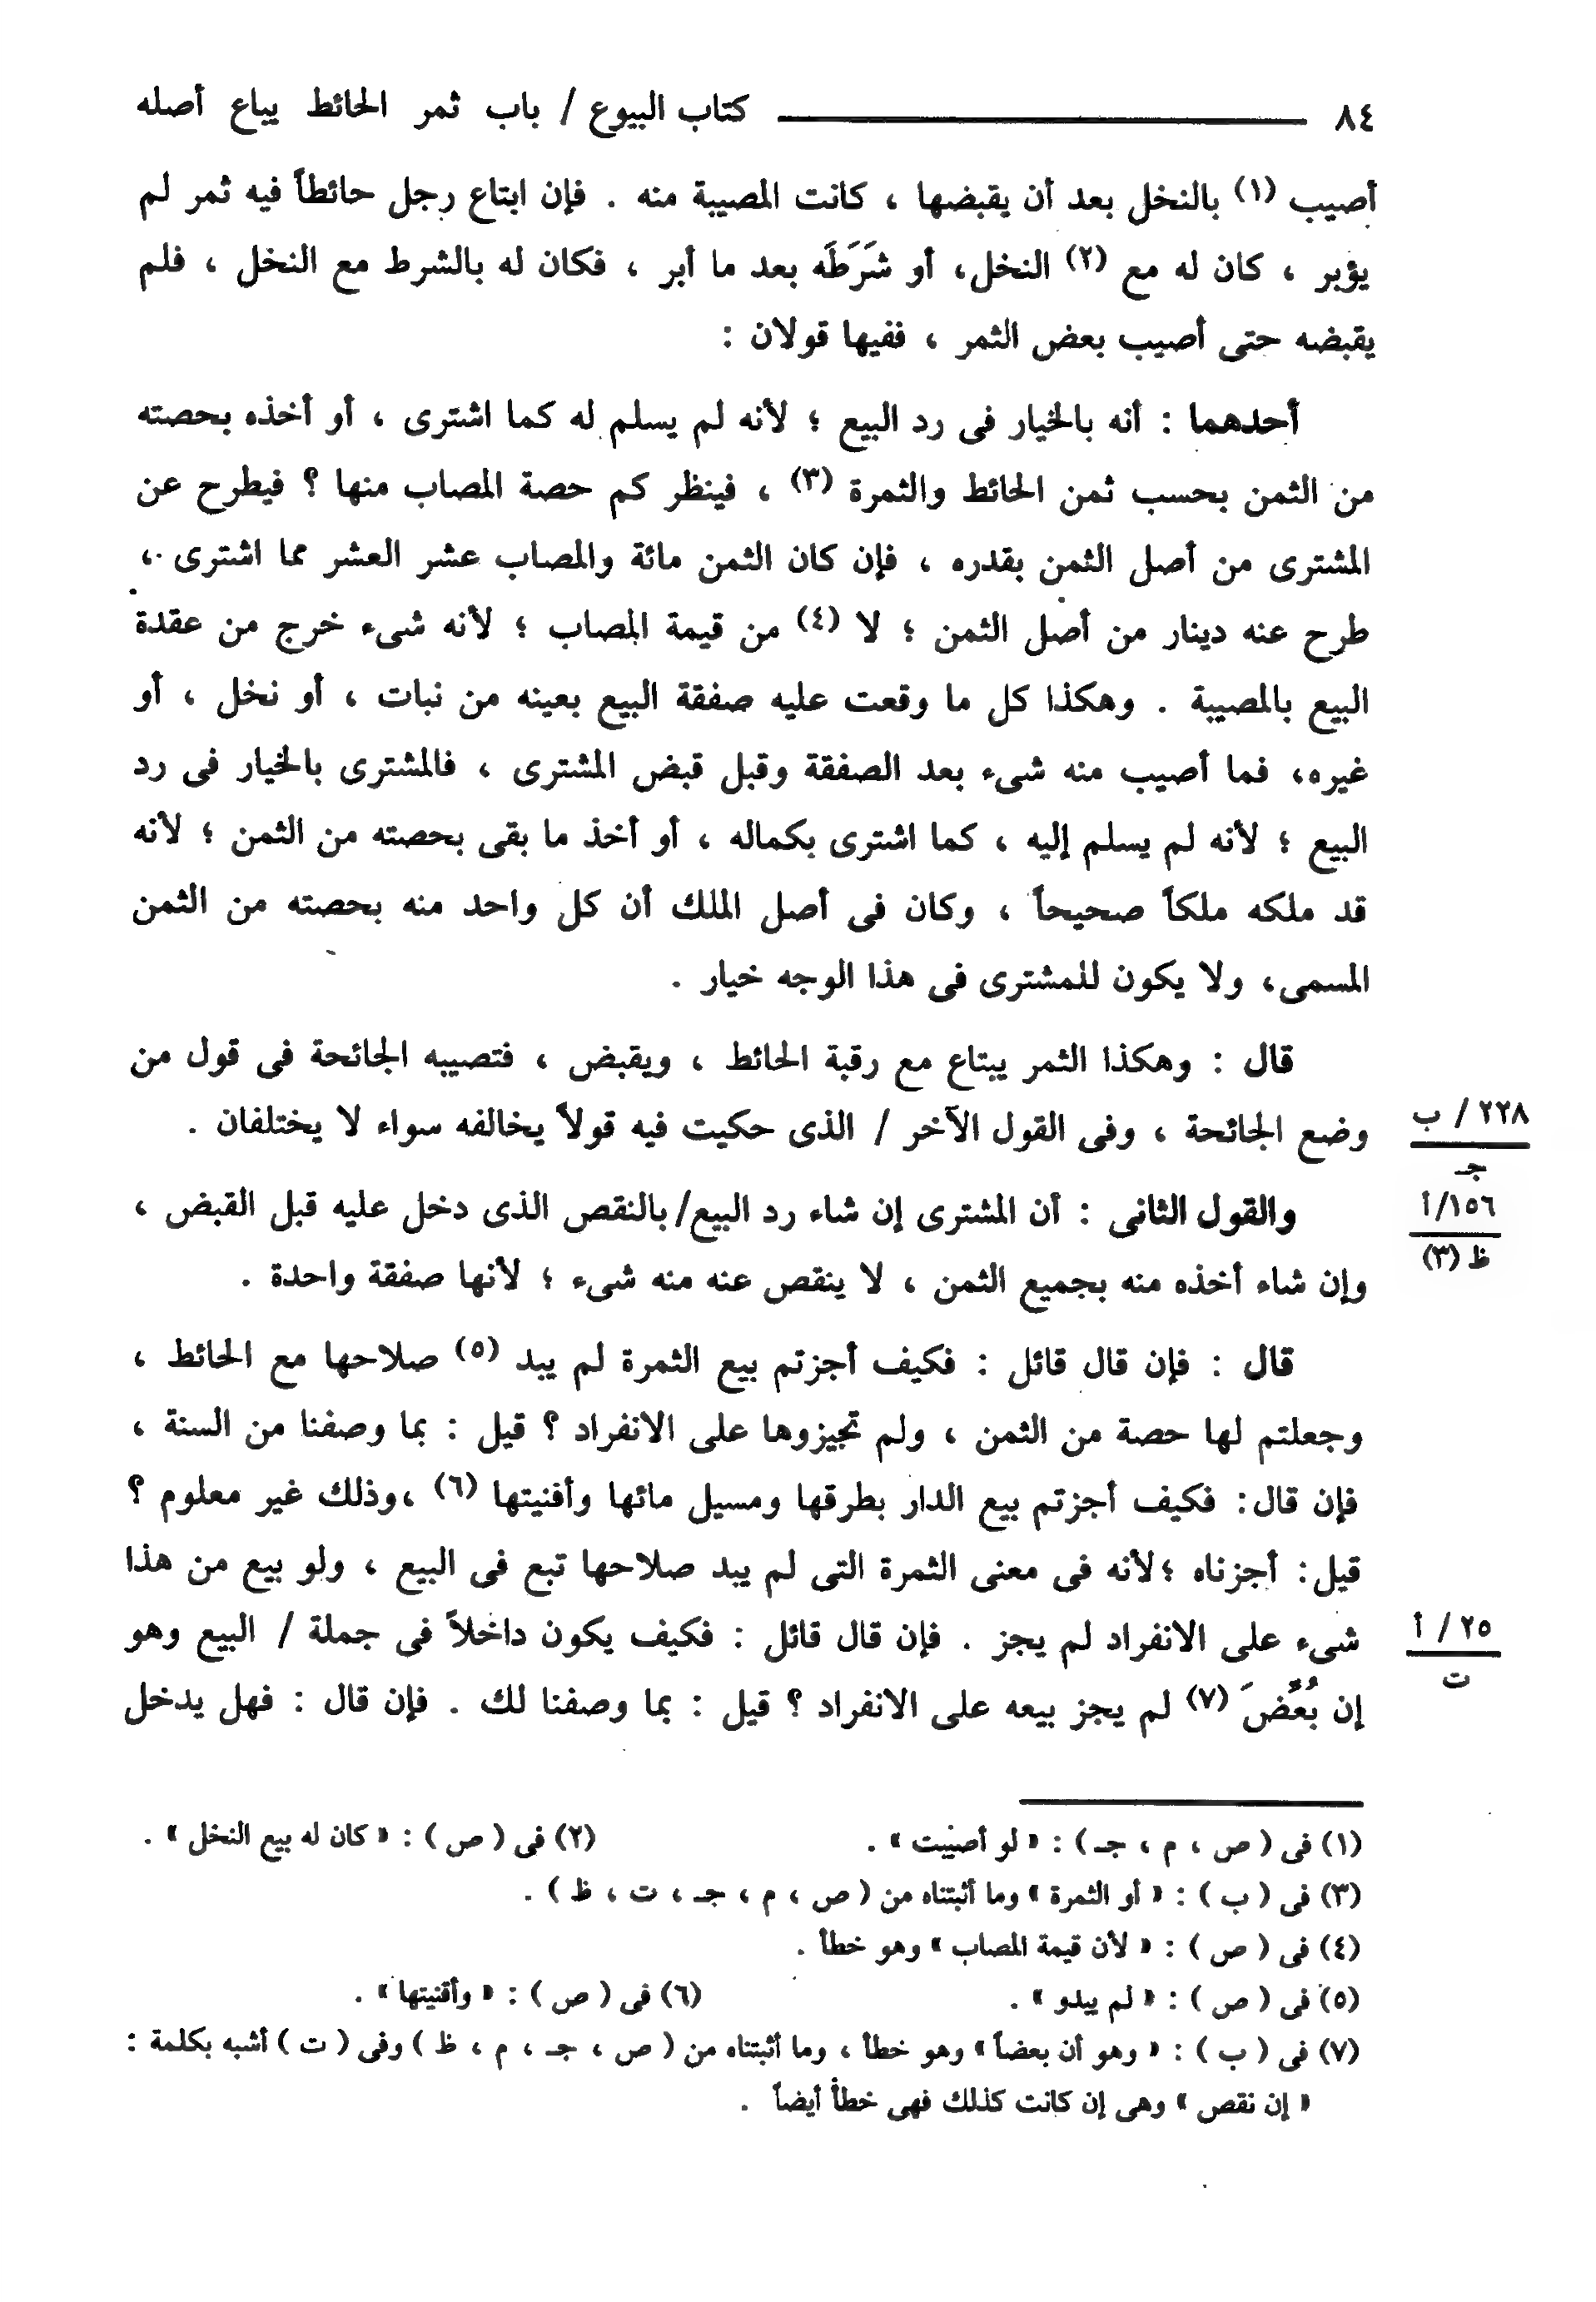 ٨٤ كتاب البيوع / باب ثمر الحائط يباع أصله
أصيب (١) بالنخل بعد أن يقبضها ، كانت المصيبة منه . فإن ابتاع رجل حائطاً فيه ثمر لم
يؤبر ، كان له مع (٢) النخل، أو شَرَطَه بعد ما أبر ، فكان له بالشرط مع النخل ، فلم
يقبضه حتى أصيب بعض الثمر ، ففيها قولان :
أحدهما : أنه بالخيار فى رد البيع ؛ لأنه لم يسلم له كما اشترى ، أو أخذه بحصته
من الثمن بحسب ثمن الحائط والثمرة (٣) ، فينظر كم حصة المصاب منها ؟ فيطرح عن
المشترى من أصل الثمن بقدره ، فإن كان الثمن مائة والمصاب عشر العشر مما اشترى ،
طرح عنه دينار من أصل الثمن ؛ لا (٤) من قيمة المصاب ؛ لأنه شىء خرج من عقدة
البيع بالمصيبة . وهكذا كل ما وقعت عليه صفقة البيع بعينه من نبات ، أو نخل ، أو
غيره، فما أصيب منه شىء بعد الصفقة وقبل قبض المشترى ، فالمشترى بالخيار فى رد
البيع ؛ لأنه لم يسلم إليه ، كما اشترى بكماله ، أو أخذ ما بقى بحصته من الثمن ؛ لأنه
قد ملكه ملكاً صحيحاً ، وكان فى أصل الملك أن كل واحد منه بحصته من الثمن
المسمى، ولا يكون للمشترى فى هذا الوجه خيار .
قال : وهكذا الثمر يبتاع مع رقبة الحائط ، ويقبض ، فتصيبه الجائحة فى قول من
وضع الجائحة ، وفى القول الآخر / الذى حكيت فيه قولاً يخالفه سواء لا يختلفان .
٢٢٨ / ب
جـ
والقول الثانى : أن المشترى إن شاء رد البيع/ بالنقص الذى دخل عليه قبل القبض ،
١٥٦/ أ
ظ (٣)
وإن شاء أخذه منه بجميع الثمن ، لا ينقص عنه منه شىء ؛ لأنها صفقة واحدة .
قال : فإن قال قائل : فكيف أجزتم بيع الثمرة لم يبد (٥) صلاحها مع الحائط ،
وجعلتم لها حصة من الثمن ، ولم تجيزوها على الانفراد ؟ قيل : بما وصفنا من السنة ،
فإن قال: فكيف أجزتم بيع الدار بطرقها ومسيل مائها وأفنيتها (٦) ،وذلك غير معلوم ؟
قيل: أجزناه ؛لأنه فى معنى الثمرة التى لم يبد صلاحها تبع فى البيع ، ولو بيع من هذا
شىء على الانفراد لم يجز . فإن قال قائل : فكيف يكون داخلاً فى جملة / البيع وهو
٢٥ / أ
ت
إن بُعِّضَ (٧) لم يجز بيعه على الانفراد ؟ قيل : بما وصفنا لك . فإن قال : فهل يدخل
(١) فى ( ص ، م ، جـ ) : « لو أصيبت » . (٢) فى ( ص ) : « كان له بيع النخل » .
(٣) فى ( ب ) : « أو الثمرة » وما أثبتناه من ( ص ، م ، جـ ، ت ، ظ ) .
(٤) فى ( ص ) : « لأن قيمة المصاب » وهو خطأ .
(٥) فى ( ص ) : « لم يبدو » . (٦) فى ( ص ) : « وأقنيتها » .
(٧) فى ( ب ) : « وهو أن بعضاً » وهو خطأ ، وما أثبتناه من ( ص ، جـ ، م ، ظ ) وفى ( ت ) أشبه بكلمة :
« إن نقص » وهى إن كانت كذلك فهى خطأ أيضاً .